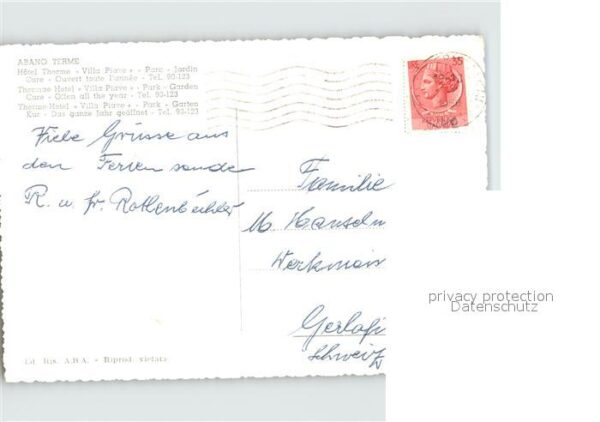 ABANO TERME
Hôtel Therme - Villa Piave - Parc - Jardin
Cure - Ouvert toute l'année - Tel. 90-123
Thermae Hotel « Villa Piave » - Park - Garden
Care - Open all the year - Tel. 93-123
Therme-Hotel « Villa Piave » - Park - Garten
Kur - Das ganze Jahr geöffnet - Tel. 93-123
35
Liebe Grüsse aus
den Ferien sende
R. u. fr.
Familie
M.
Werkmais
Gerlafi
Schweiz
Ed. Ris. A.B.A. - Riprod. vietata
privacy protection
Datenschutz